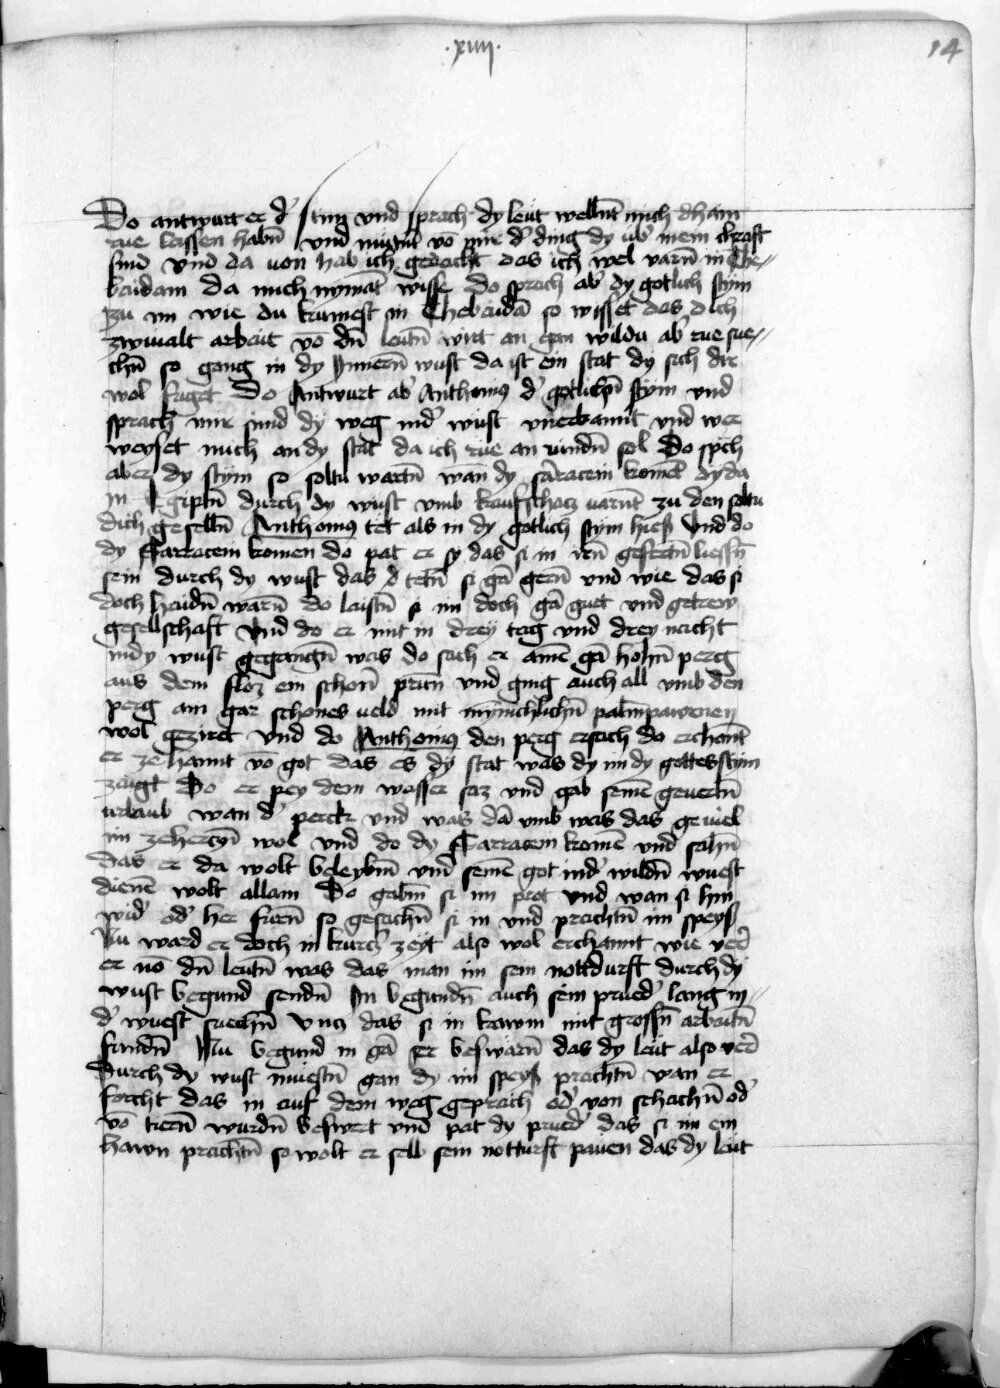 ·xiiij·
14
Do antwurt er d' stim vnd sprach dy leüt wellnt mich dhain
rue lassen habn̄ vnd mutnt vō mir d' ding dy vb' mein chraft
sind vnd da uon hab ich gedacht das ich wel varn̄ in The//
baidam da mich nymāt wisse do sprach ab' dy gotlich stym
zu im wie du kumest in Thebaidā so wisset das dich
zwiualt arbait vō dn̄ leutn̄ wirt an gan wildu ab' rue sue//
chn̄ so gang in dy Innern̄ wust da ist ein stat dy sich dir
wol fuget Do Antwurt ab' Anthonius d' gotlichn̄ stym vnd
sprach mir sind dy weg ind' wust vnerkannt vnd wer
weyset mich an dy stat da ich rue an vindn̄ sol Do sp̄ch
aber dy stym so soltu wartn̄ wan̄ dy sarracein komēt dy da
in Egiptn̄ durch dy wust vmb kaufschacz uarnt zu den soltu
dich geselln̄ Anthonius tet als in dy gotlich stym hieß Vnd do
dy Sarracein komen do pat er sy das si in irn̄ gefertn̄ liessn̄
sein durch dy wust das tetn̄ si gā gern̄ vnd wie das si
doch haidn̄ warn̄ do laistn̄ si im doch gā guet vnd getrew
gesellschaft Vnd do er mit in drey tag vnd drey nacht
indy wust gegangn̄ was do sach er ainē gā hohn̄ perg
aus dem floz ein schon̄ prun̄ vnd ging auch all vmb den
perg ain gar schones ueld mit mynichlichn̄ palmpawmen
wol geziret vnd do Anthonius den perg ersach do erchant
er zehannt vō got das es dy stat was dy im dy gottes stym
zaigt Do er pey dem wasser saz vnd gab seinē geuertn̄
urlaub wan d' perckt vnd was dā vmb was das geuiel
im zehercȳn wol vnd do dy Sarracein komēn vnd sahn̄
das er da wolt beleybn̄ vnd seinē got ind' wildn̄ wuest
dienē wolt allain Do gabn̄ si im prot vnd wan si hin
wid' od' her furn̄ so gesachn̄ si in vnd prachtn̄ im speyß
Nu ward er doch in kurcz' zeyt also wol erchannt wie verr̄
er uō dn̄ leutn̄ was das man im sein nottdurft durch dy
wust begund sendn̄ In begundn̄ auch sein prued' lang in//
d' wuest suechn̄ vncz das si in kawm mit grossn̄ arbaitn̄
fundn̄ Nu begund in gā ser beswärn̄ das dy leüt also verr̄
durch dy wust muestn̄ gan dy im speyß prachtn̄ wan er
forcht das in auf dem weg geprach od' von schachn̄ od'
vō tiern̄ wurdn̄ beswert vnd pat dy prued' das si im ein
hawn prachtn̄ so wolt er selb sein notturft pauen das dy leüt